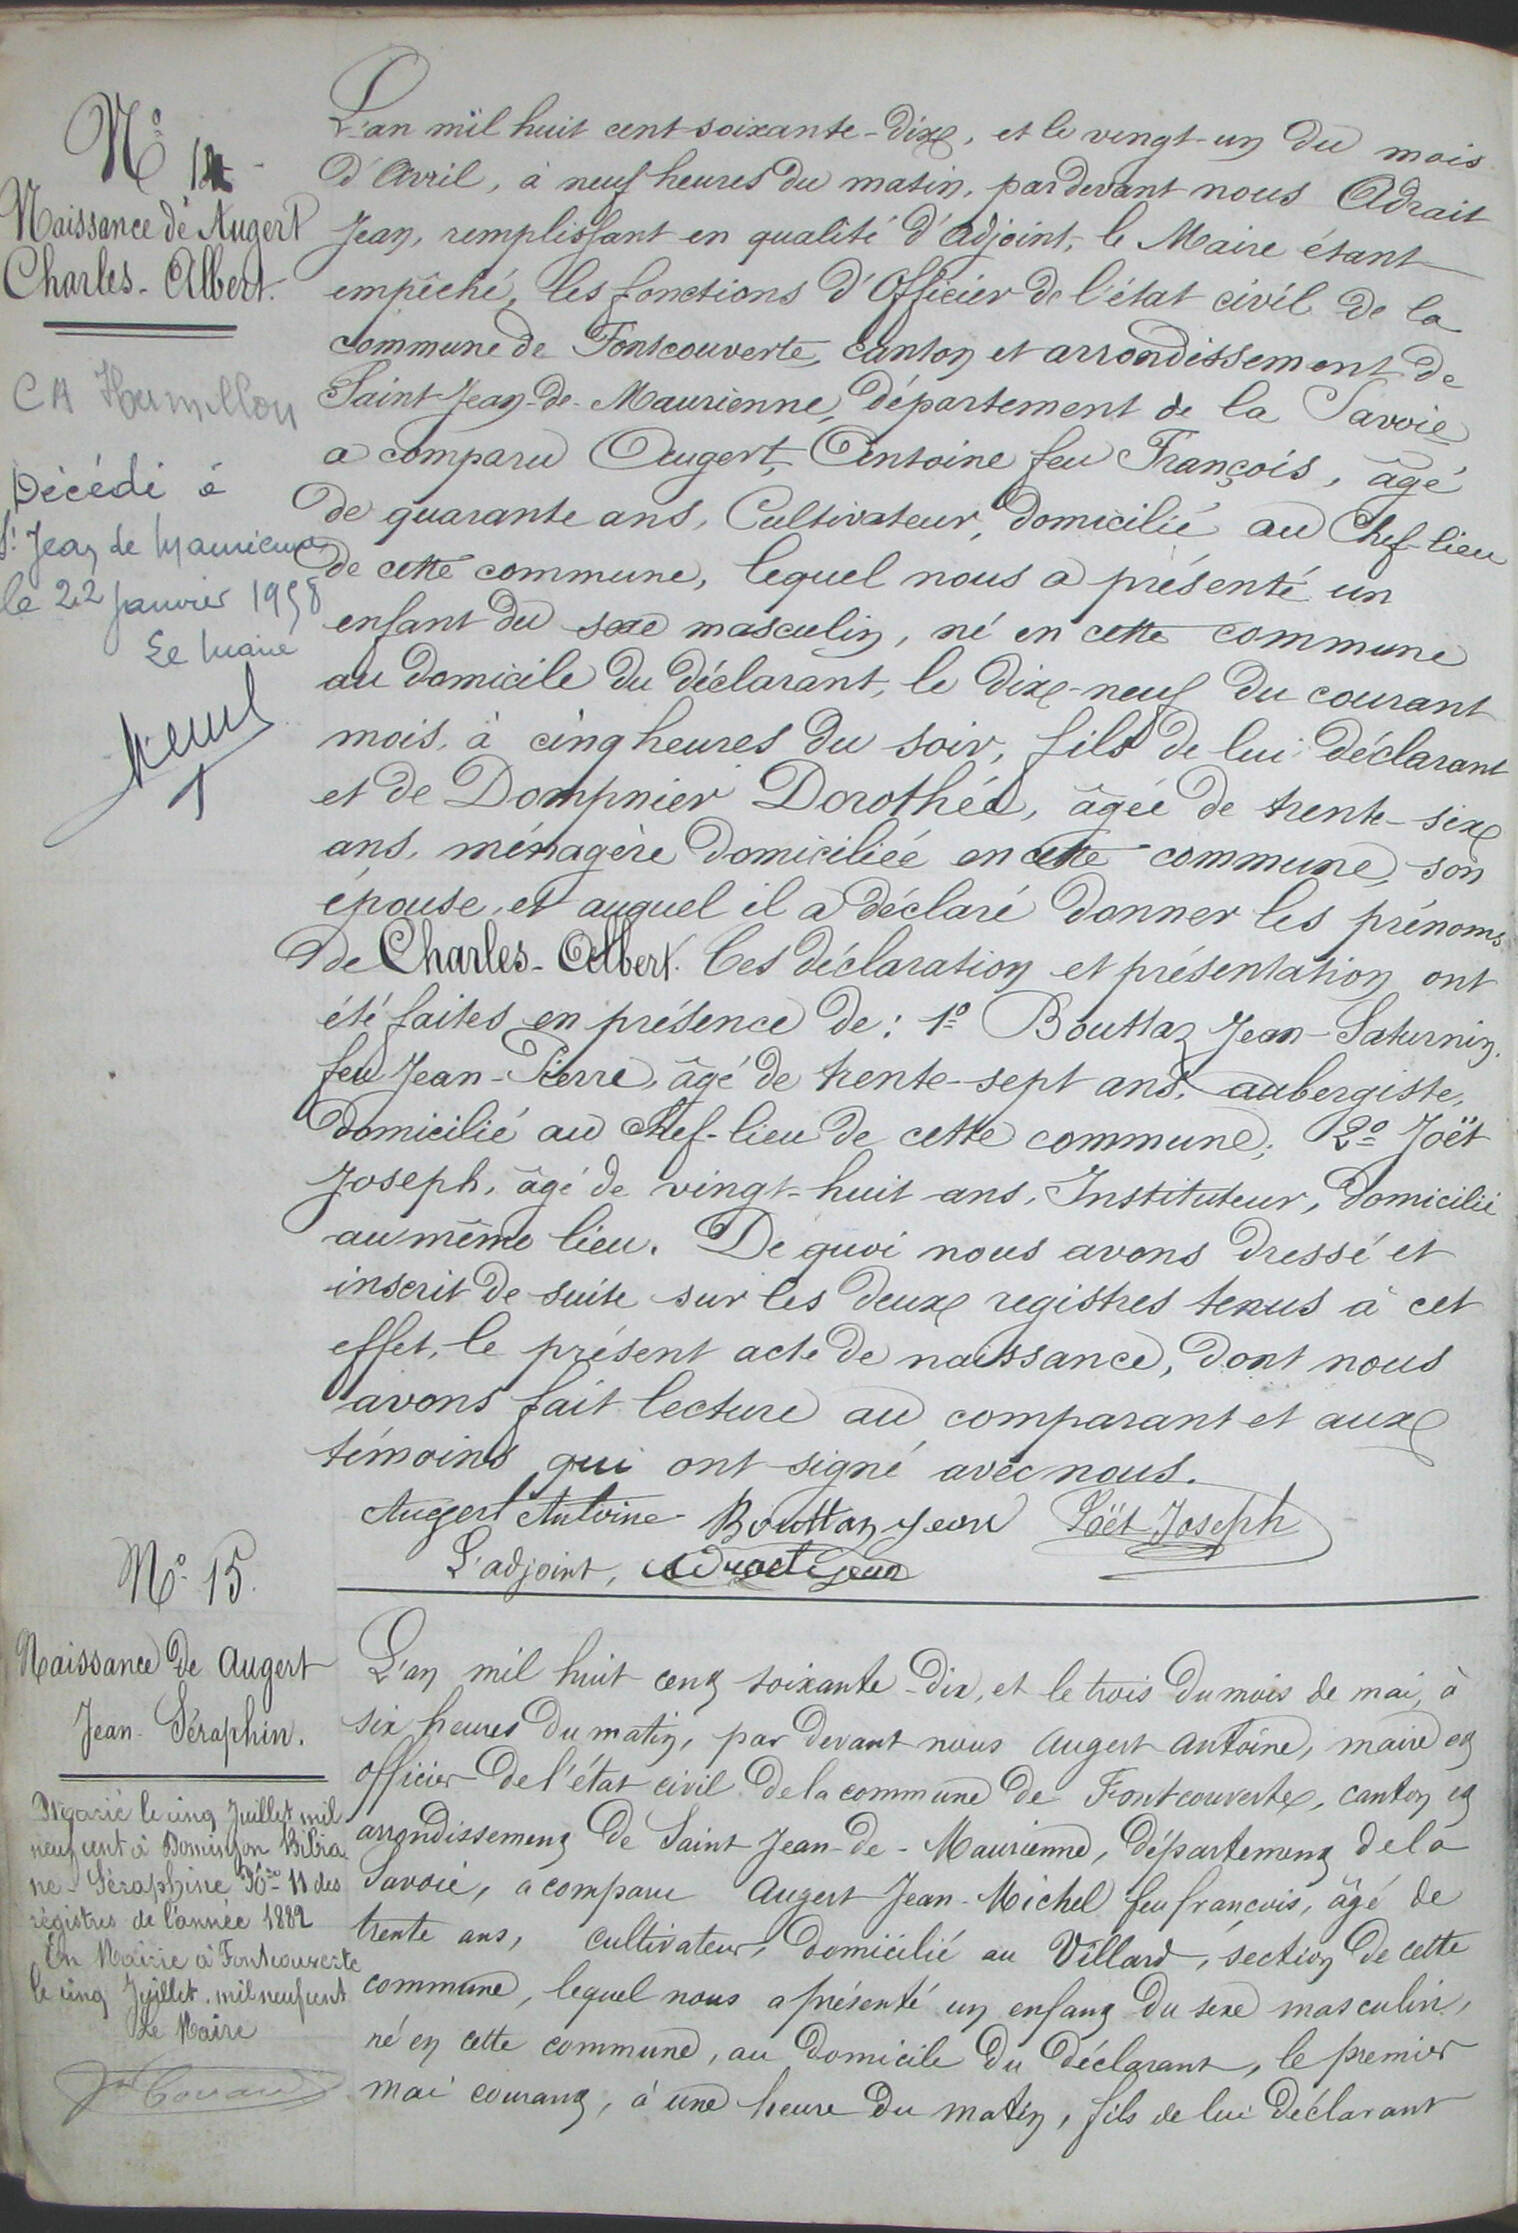 N° 14
Naissance de Augert
Charles-Albert.
CA Hermillon
Décédé à
St Jean de Maurienne
le 22 Janvier 1958
Le Maire
L'an mil huit cent soixante-dix, et le vingt-un du mois
d'Avril, à neuf heures du matin, pardevant nous Adrait
Jean, remplissant en qualité d'adjoint, le Maire étant
empêché, les fonctions d'Officier de l'état civil de la
commune de Fontcouverte, canton et arrondissement de
Saint-Jean-de-Maurienne, département de la Savoie
a comparu Augert, Antoine feu François, âgé
de quarante ans, Cultivateur, domicilié au Chef-lieu
de cette commune, lequel nous a présenté un
enfant du sexe masculin, né en cette commune
au domicile du déclarant, le dix-neuf du courant
mois, à cinq heures du soir, fils de lui déclarant
et de Dompnier Dorothée, âgée de trente-six
ans, ménagère domiciliée en cette commune, son
épouse, et auquel il a déclaré donner les prénoms
de Charles-Albert. Ces déclaration et présentation ont
été faites en présence de : 1° Bouttaz Jean-Saturnin.
feu Jean-Pierre, âgé de trente-sept ans, aubergiste,
domicilié au Chef-lieu de cette commune; 2° Joët
Joseph, âgé de vingt-huit ans, Instituteur, domicilié
au même lieu. De quoi nous avons dressé et
inscrit de suite sur les deux registres tenus à cet
effet, le présent acte de naissance, dont nous
avons fait lecture au comparant et aux
témoins qui ont signé avec nous.
Augert Antoine Bouttaz Jean Joët Joseph
L'adjoint, Adrait Jean
N° 15.
Naissance de Augert
Jean-Séraphin.
Marié le cinq Juillet mil
neuf cent à Dominjon Bibia
ne-Séraphine N° 11 des
régistres de l'année 1882
En Mairie à Fontcouverte
le cinq Juillet mil neuf cent
Le Maire
L'an mil huit cent soixante-dix, et le trois du mois de mai, à
six heures du matin, par devant nous Augert Antoine, maire et
officier de l'état civil de la commune de Fontcouverte, canton et
arrondissement de Saint Jean-de-Maurienne, département de la
Savoie, a comparu Augert Jean-Michel feu françois, âgé de
trente ans, cultivateur, domicilié au Villard, section de cette
commune, lequel nous a présenté un enfant du sexe masculin,
né en cette commune, au domicile du déclarant, le premier
mai courant, à une heure du matin, fils de lui déclarant